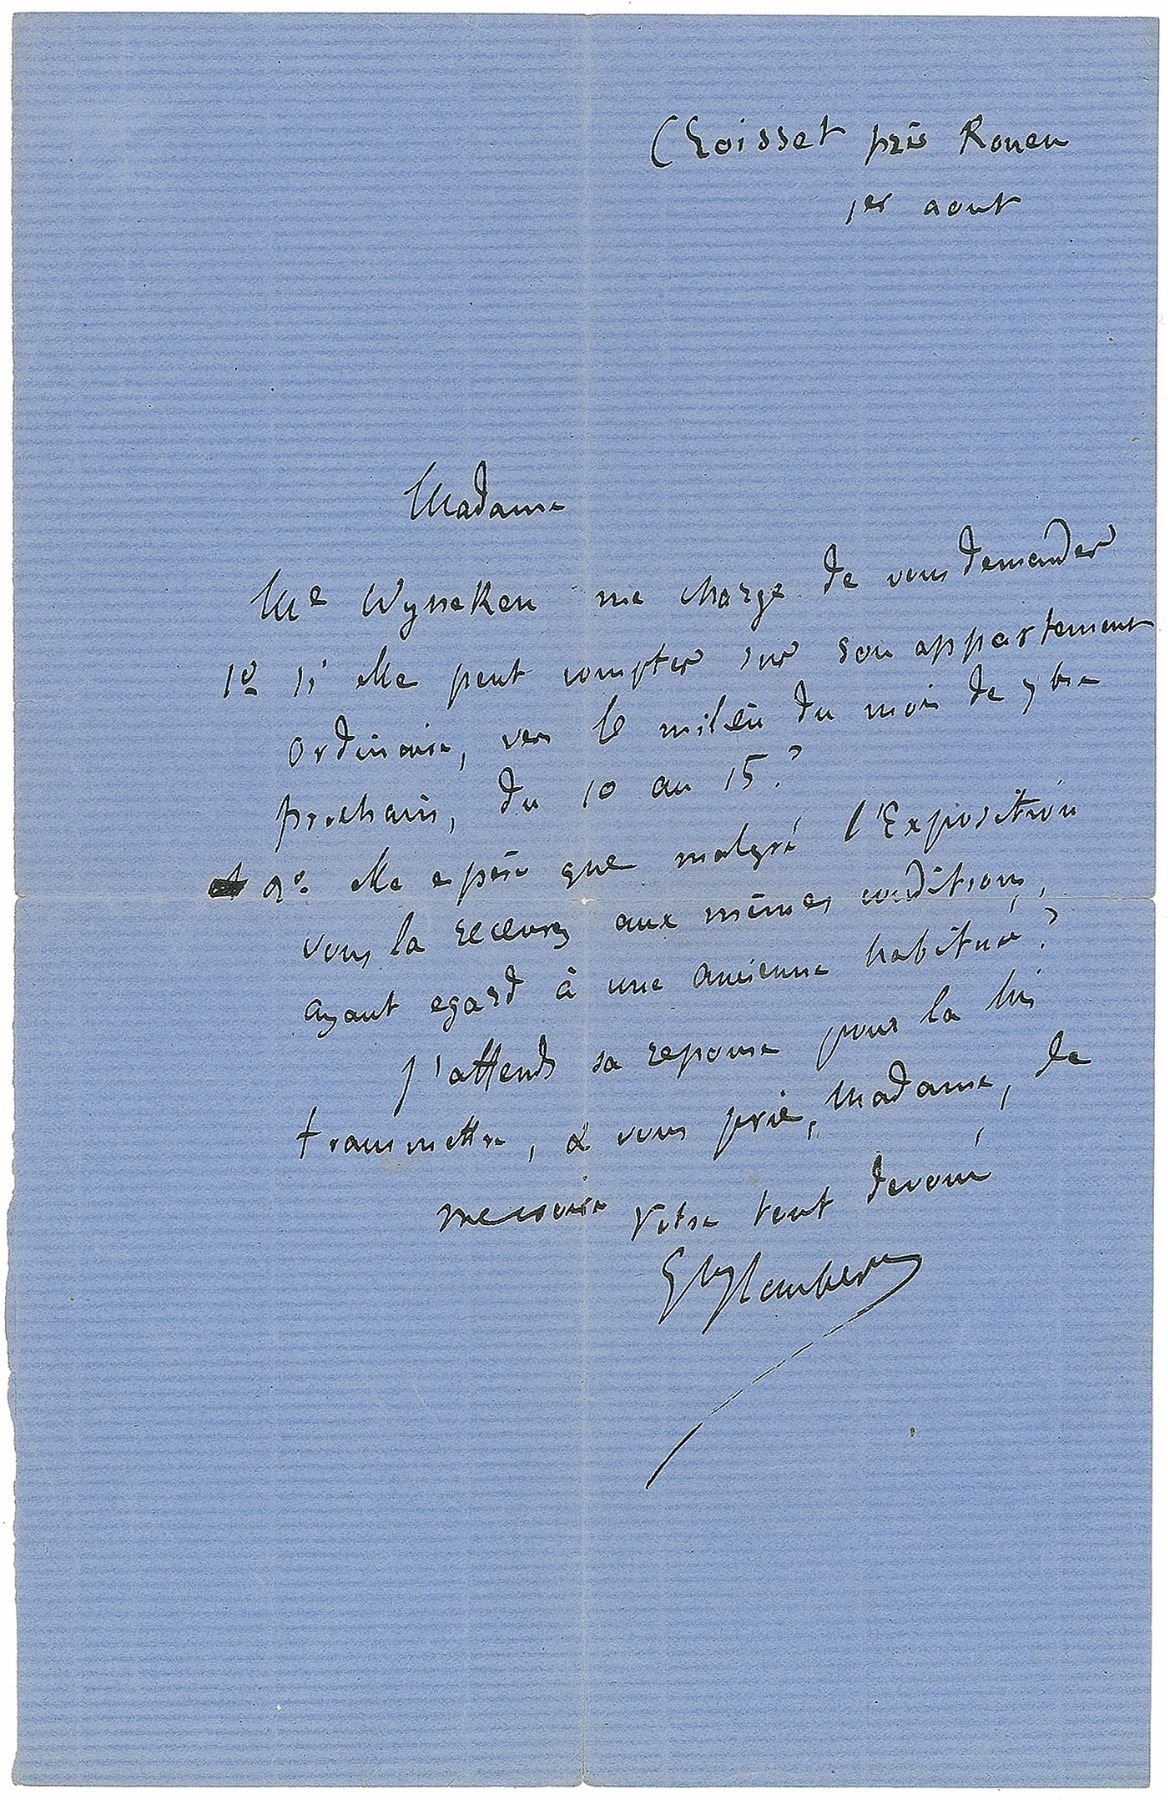 Croisset près Rouen
1er aout
Madame
Me Wyneken me charge de vous demander
1º si elle peut compter sur son appartement
ordinaire, vers le milieu du mois de 7bre
prochain, du 10 au 15?
2º elle espère que malgré l'Exposition
vous la recevrez aux mêmes conditions,
ayant egard à une ancienne habituée?
J'attends sa reponse pour la lui
transmettre, & vous prie, Madame, de
me croire Votre tout devoué
GveFlaubert